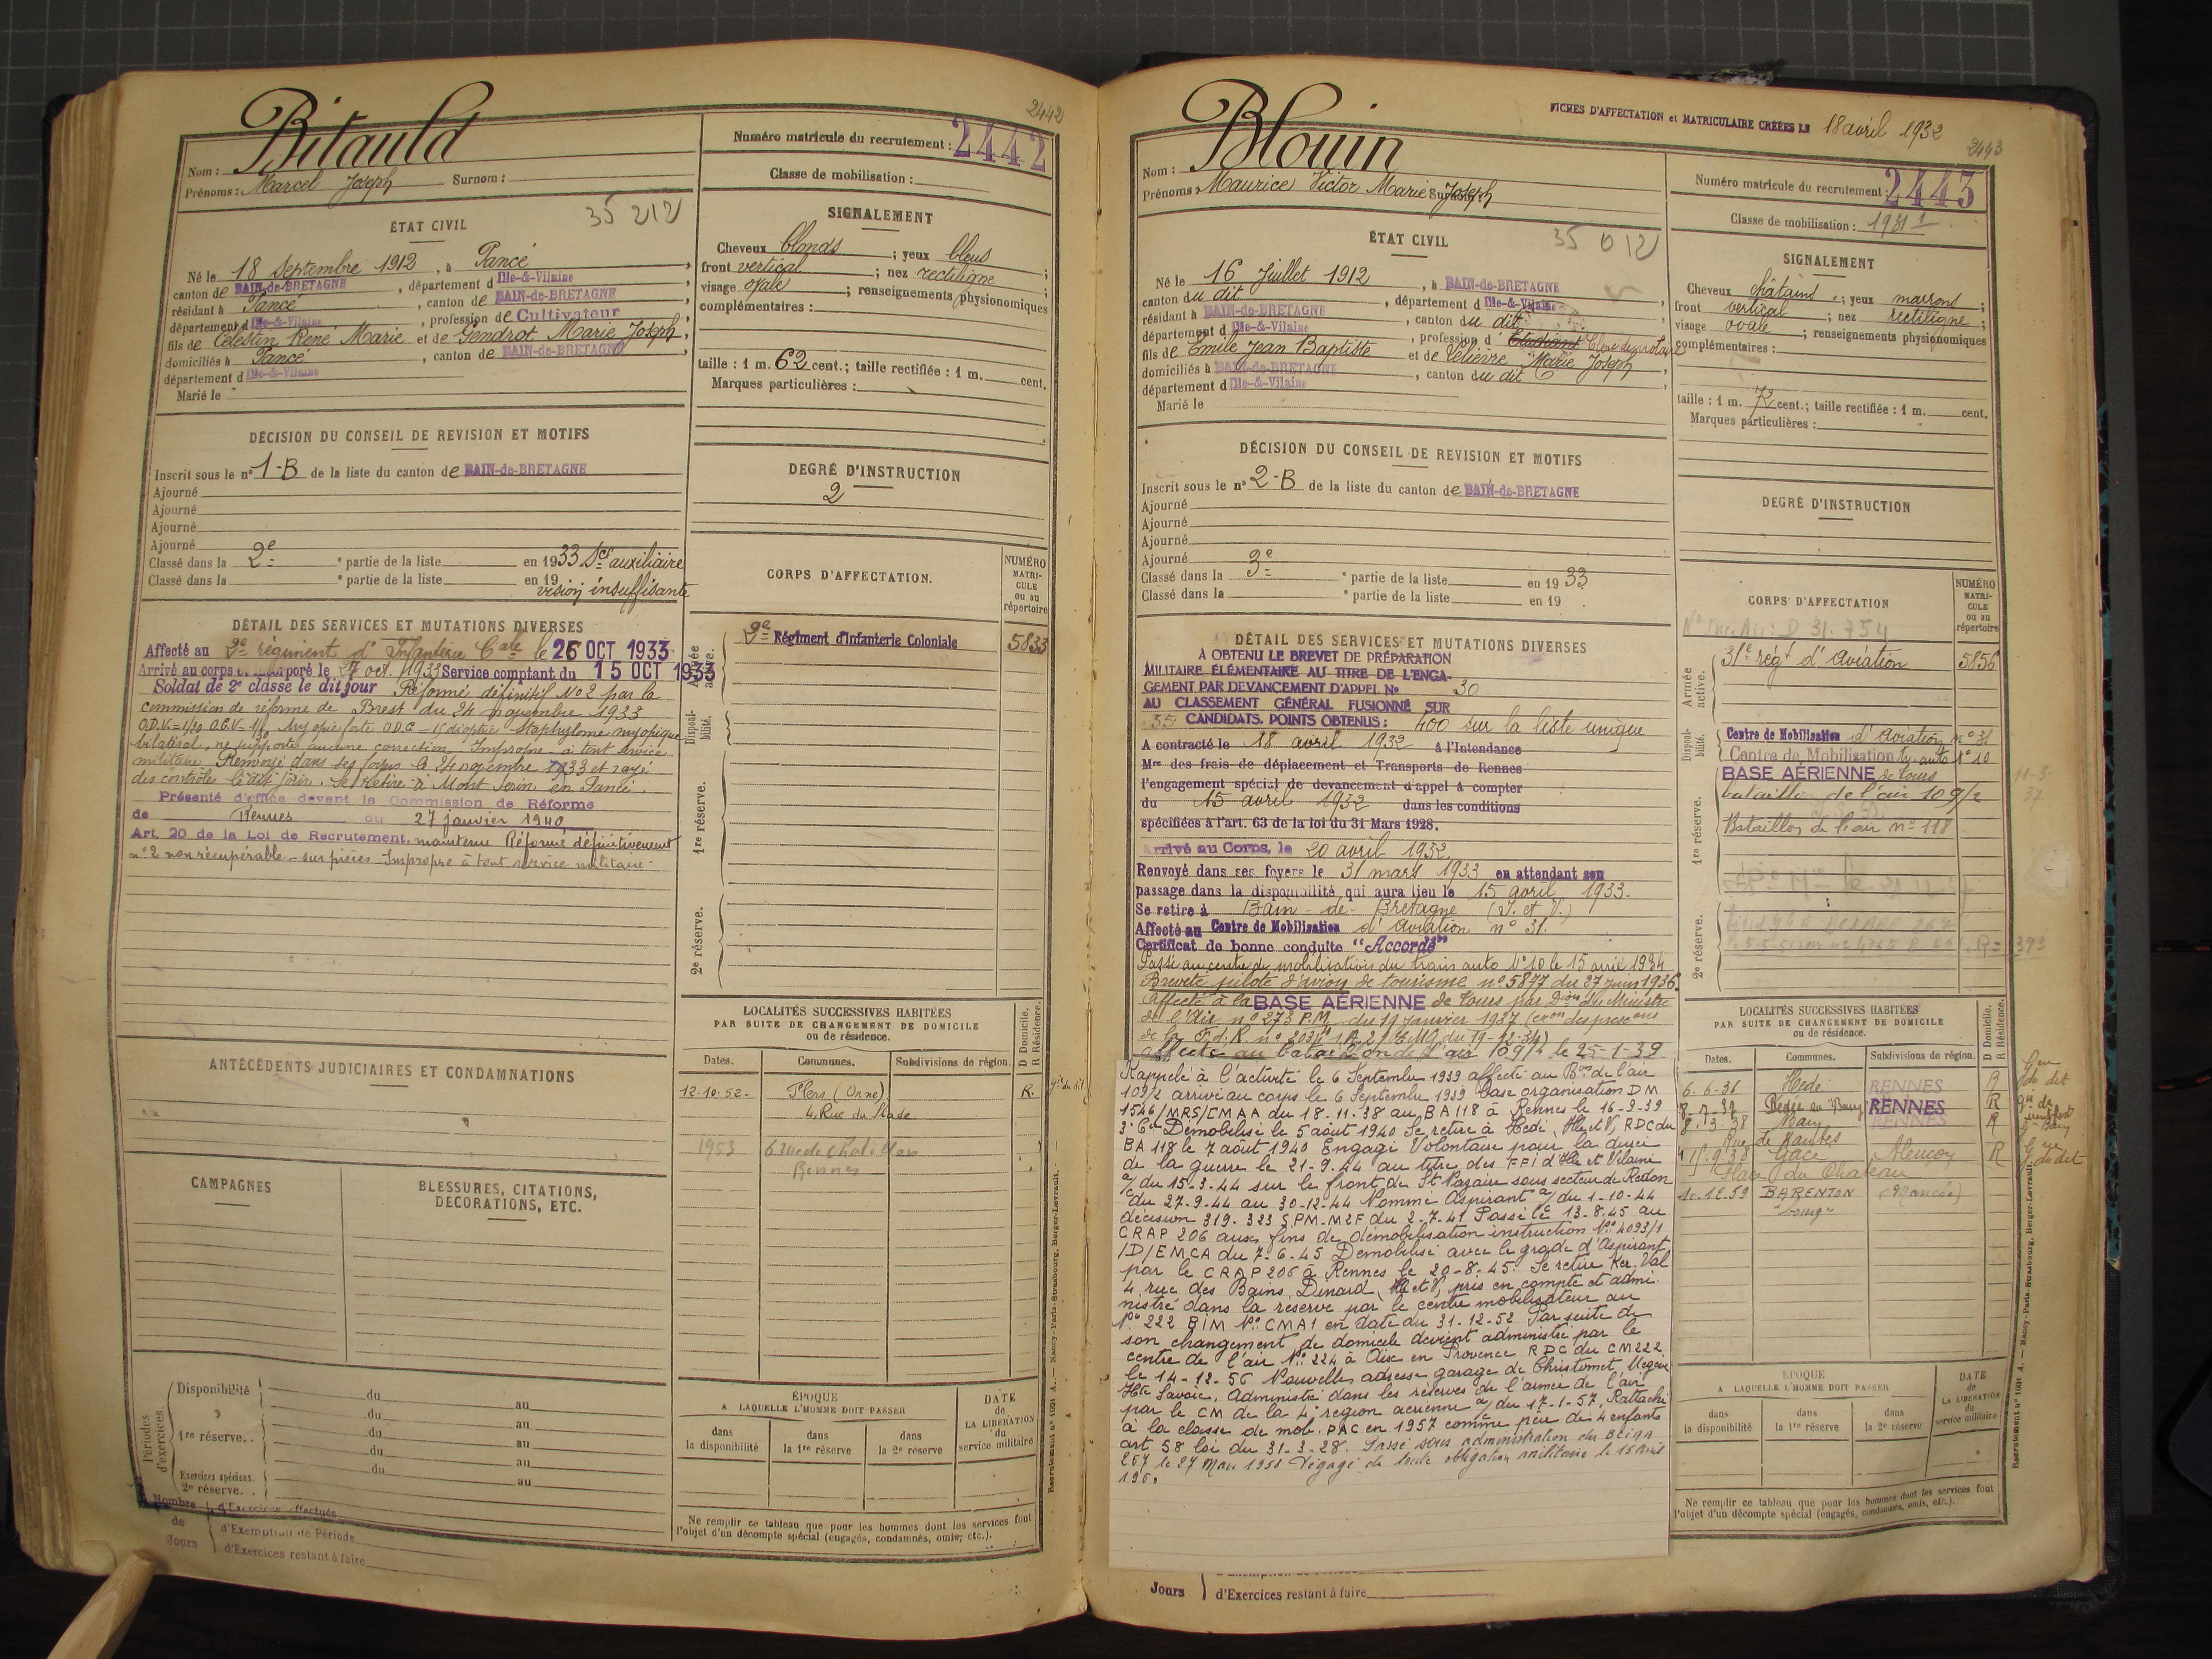 2442
Bitauld
Nom :
Prénoms : Marcel Joseph Surnom :
Numéro matricule du recrutement : 2442
Classe de mobilisation :
ÉTAT CIVIL
35 212
Né le 18 Septembre 1912, à Pancé,
canton de BAIN-de-BRETAGNE, département d Ille-&-Vilaine,
résidant à Pancé, canton de BAIN-de-BRETAGNE,
département d Ille-&-Vilaine, profession de Cultivateur,
fils de Célestin René Marie et de Gendrot Marie Joseph,
domiciliés à Pancé, canton de BAIN-de-BRETAGNE,
département d Ille-&-Vilaine
Marié le
SIGNALEMENT
Cheveux blonds ; yeux bleus ;
front vertical ; nez rectiligne ;
visage ovale ; renseignements physionomiques
complémentaires :
taille : 1 m. 62 cent.; taille rectifiée : 1 m. cent.
Marques particulières :
DÉCISION DU CONSEIL DE REVISION ET MOTIFS
Inscrit sous le n° 1-B de la liste du canton de BAIN-de-BRETAGNE
Ajourné
Ajourné
Ajourné
Ajourné
Classé dans la 2e partie de la liste en 1933 Sce auxiliaire
Classé dans la e partie de la liste en 19
vision insuffisante
DEGRÉ D'INSTRUCTION
2
CORPS D'AFFECTATION.
NUMÉRO MATRICULE ou au répertoire
DÉTAIL DES SERVICES ET MUTATIONS DIVERSES
Affecté au 2e régiment d'Infanterie Cale le 26 OCT 1933
Arrivé au corps et incorporé le 27 oct. 1933 Service comptant du 15 OCT 1933
Soldat de 2e classe le dit jour Réformé définitif No 2 par la
commission de réforme de Brest du 24 novembre 1933
bilatéral, ne supporte aucune correction. Impropre à tout service
militaire. Renvoyé dans ses foyers le 24 novembre 1933 et rayé
des contrôles le dit jour. Se retire à en Pancé.
Présenté d'office devant la Commission de Réforme
de Rennes du 27 janvier 1940
Art. 20 de la Loi de Recrutement. maintenu Réformé définitivement
n° 2 non récupérable - sur pièces - Impropre à tout service militaire -
Armée active.
2e Régiment d'Infanterie Coloniale 5833
Disponibilité.
1re réserve.
2e réserve.
ANTÉCÉDENTS JUDICIAIRES ET CONDAMNATIONS
LOCALITÉS SUCCESSIVES HABITÉES
PAR SUITE DE CHANGEMENT DE DOMICILE
ou de résidence.
D Domicile.
R Résidence.
Dates. Communes. Subdivisions de région.
12-10-52- Flers (Orne) R.
4, Rue du Stade
1953
Rennes
CAMPAGNES
BLESSURES, CITATIONS,
DÉCORATIONS, ETC.
Périodes d'exercices.
Disponibilité du au
du au
1re réserve.. du au
du au
Exercices spéciaux. du au
2e réserve..
Nombre de Jours
d'Exercices effectués
d'Exemption de Période
d'Exercices restant à faire
ÉPOQUE
A LAQUELLE L'HOMME DOIT PASSER
dans la disponibilité
dans la 1re réserve
dans la 2e réserve
DATE de LA LIBÉRATION du service militaire
Ne remplir ce tableau que pour les hommes dont les services font
l'objet d'un décompte spécial (engagés, condamnés, omis, etc.).
Recrutement n° 1001 A. — Nancy-Paris-Strasbourg, Berger-Levrault.
FICHES D'AFFECTATION et MATRICULAIRE CRÉÉES LE 18 avril 1932
2443
Blouin
Nom :
Prénoms : Maurice Victor Marie Joseph Surnom :
Numéro matricule du recrutement : 2443
Classe de mobilisation : 1931
ÉTAT CIVIL
35 012
Né le 16 Juillet 1912, à BAIN-de-BRETAGNE
canton du dit, département d Ille-&-Vilaine,
résidant à BAIN-de-BRETAGNE, canton du dit
département d Ille-&-Vilaine, profession d Etudiant Clerc de notaire
fils de Emile Jean Baptiste et de Lelièvre Marie Joseph,
domiciliés à BAIN-de-BRETAGNE, canton du dit,
département d Ille-&-Vilaine
Marié le
SIGNALEMENT
Cheveux châtains ; yeux marrons ;
front vertical ; nez rectiligne ;
visage ovale ; renseignements physionomiques
complémentaires :
taille : 1 m. 72 cent.; taille rectifiée : 1 m. cent.
Marques particulières :
DÉCISION DU CONSEIL DE REVISION ET MOTIFS
Inscrit sous le n° 2-B de la liste du canton de BAIN-de-BRETAGNE
Ajourné
Ajourné
Ajourné
Ajourné
Classé dans la 3e partie de la liste en 1933
Classé dans la e partie de la liste en 19
DEGRÉ D'INSTRUCTION
CORPS D'AFFECTATION
NUMÉRO MATRICULE ou au répertoire
DÉTAIL DES SERVICES ET MUTATIONS DIVERSES
A OBTENU LE BREVET DE PRÉPARATION
MILITAIRE ÉLÉMENTAIRE AU TITRE DE L'ENGA-
GEMENT PAR DEVANCEMENT D'APPEL No 30
AU CLASSEMENT GÉNÉRAL FUSIONNÉ SUR
35 CANDIDATS. POINTS OBTENUS : 400 sur la liste unique
A contracté le 18 avril 1932 à l'Intendance
Mre des frais de déplacement et Transports de Rennes
l'engagement spécial de devancement d'appel à compter
du 15 avril 1932 dans les conditions
spécifiées à l'art. 63 de la loi du 31 Mars 1928.
Arrivé au Corps, le 20 avril 1932.
Renvoyé dans ses foyers le 31 mars 1933 en attendant son
passage dans la disponibilité qui aura lieu le 15 avril 1933.
Se retire à Bain-de-Bretagne (I. et V.)
Affecté au Centre de Mobilisation d'aviation n° 31.
Certificat de bonne conduite "Accordé"
Passé au centre de mobilisation du train auto No 10 le 15 avril 1934
Breveté pilote d'avion de tourisme n° 5877 du 27 juin 1936
Affecté à la BASE AÉRIENNE de Tours par Dion du Ministre
de l'Air n° 273 P.M. du 19 janvier 1937
affecté au bataillon de l'air 109/2 le 25-1-39
Rappelé à l'activité le 6 Septembre 1939 affecté au Bon de l'air
109/2 arrivé au corps le 6 Septembre 1939 base organisation DM
1546/MRS/CMAA du 18-11-38 au BA 118 à Rennes le 16-9-39
3e Cie Démobilisé le 5 août 1940 Se retire à Hédé, Ille et V, RDC du
BA 118 le 7 août 1940 Engagé Volontaire pour la durée
de la guerre le 21-9-44 au titre des FFI d'Ille et Vilaine
a/ du 15-3-44 sur le front de St Nazaire sous secteur de Redon
du 27-9-44 au 30-12-44 Nommé Aspirant a/ du 1-10-44
décision 319-323 SPM-M2F du 2-7-41 Passé le 13-8-45 au
CRAP 206 aux fins de démobilisation instruction No 4093/1
/D/EMCA du 7-6-45 Démobilisé avec le grade d'Aspirant
par le CRAP 206 à Rennes le 20-8-45. Se retire Ker. Val
4 rue des Bains, Dinard, Ille et V, pris en compte et admi-
nistré dans la réserve par le centre mobilisateur au
No 222 BIM No CMA1 en date du 31-12-52 Par suite de
son changement de domicile devient administré par le
centre de l'air No 224 à Aix en Provence RDC du CM222
le 14-12-56 Nouvelle adresse garage de Christomet Megève
Hte Savoie. Administré dans les réserves de l'armée de l'air
par le CM de la 4e région aérienne a/ du 17-1-57, Rattaché
à la classe de mob. PAC en 1957 comme père de 4 enfants
art 58 loi du 31-3-28. Passé sous administration du
267 le 27 Mars 1958 Dégagé de toute obligation militaire le 15 avril
1960
No Mec. Air : D 31.754
Armée active.
31e régt d'Aviation 5856
Disponibilité.
Centre de Mobilisation d'aviation n° 31
Centre de Mobilisation tr. auto N° 10
BASE AÉRIENNE de Tours
bataillon de l'air 109/2
11-3-37
1re réserve.
Bataillon de l'air n° 118
2e réserve.
LOCALITÉS SUCCESSIVES HABITÉES
PAR SUITE DE CHANGEMENT DE DOMICILE
ou de résidence.
D Domicile.
R Résidence.
Dates. Communes. Subdivisions de région.
6-6-36 Hédé RENNES R
RENNES R
8-3-38 RENNES R
Rue de Nantes
Gacé Alençon R
Place du Château
BARENTON (Manche)
"bourg"
ÉPOQUE
A LAQUELLE L'HOMME DOIT PASSER
dans la disponibilité
dans la 1re réserve
dans la 2e réserve
DATE de LA LIBÉRATION du service militaire
Ne remplir ce tableau que pour les hommes dont les services font
l'objet d'un décompte spécial (engagés, condamnés, omis, etc.).
Recrutement n° 1001 A. — Nancy-Paris-Strasbourg, Berger-Levrault.
Jours
d'Exercices restant à faire